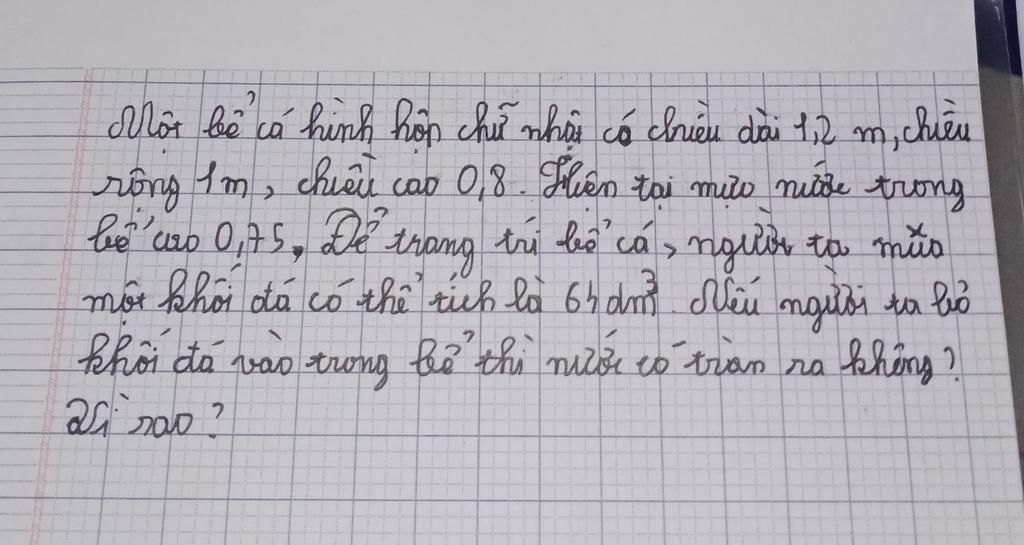 Một bể cá hình hộp chữ nhật có chiều dài 1,2 m, chiều
rộng 1m, chiều cao 0,8. Hiện tại mực nước trong
bể cao 0,75. Để trang trí bể cá, người ta mua
một khối đá có thể tích là 64 dm³. Nếu người ta bỏ
khối đá vào trong bể thì nước có tràn ra không?
Vì sao?